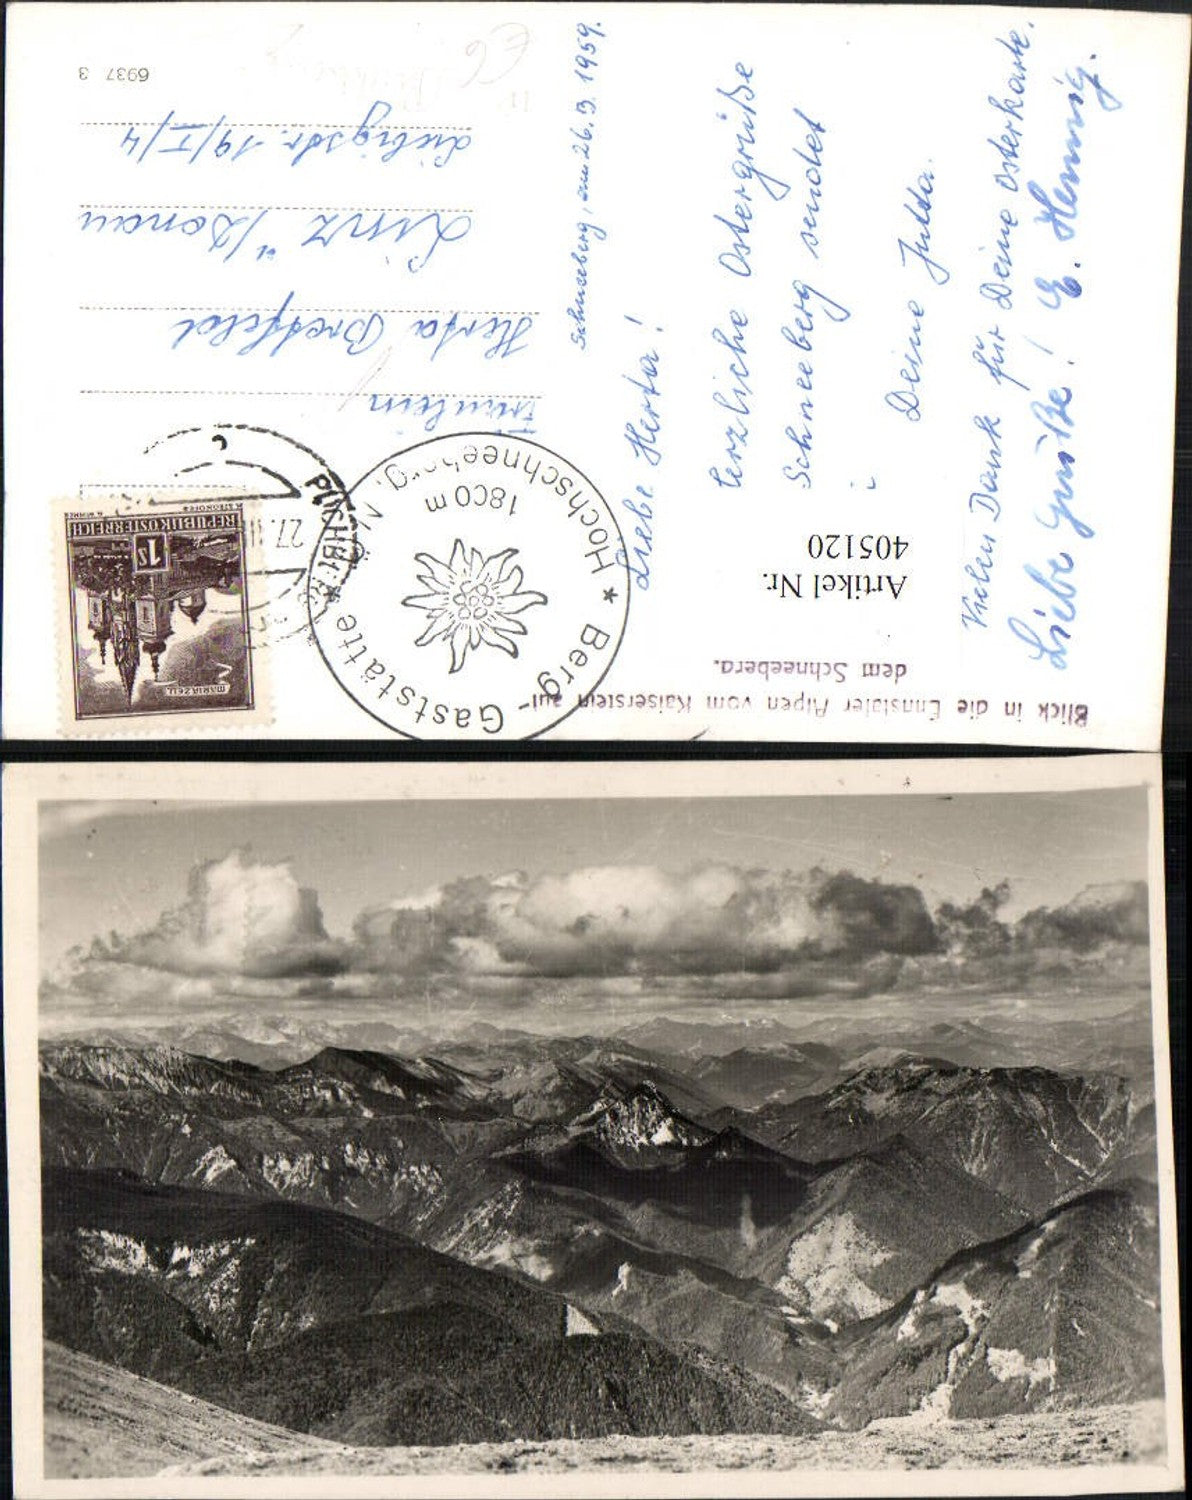 Blick in die Ennstaler Alpen vom Kaiserstein auf
dem Schneeberg.
Artikel Nr.
405120
Schneeberg, am 26.3.1959.
Liebe Herta!
Herzliche Ostergrüße
Schneeberg sendet
Deine Jutta.
Vielen Dank für Deine Osterkarte.
Liebe Grüße! E. Hennig.
* Hochschneeberg, N.Ö. *
1800 m
Berg-Gaststätte
PUCHBERG
27.
REPUBLIK ÖSTERREICH
1S
MARIAZELL
Fräulein
Herta Bretfeld
Linz a/Donau
Liebigstr. 19/I/4
6937 3